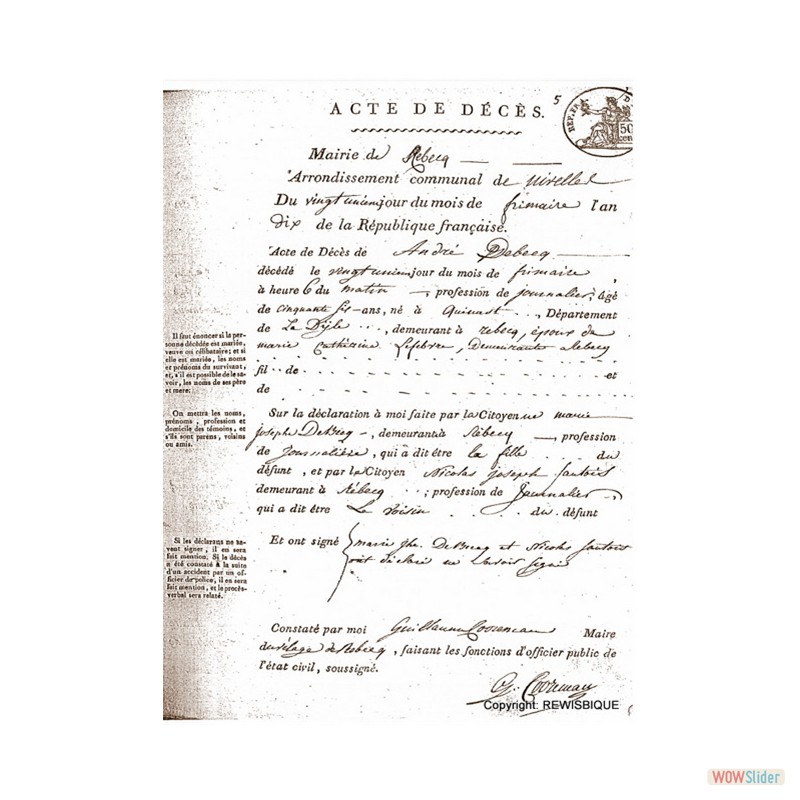 ACTE DE DÉCÈS. 5
REP. FRA. 50 cen
Mairie de Rebecq
Arrondissement communal de nivelles
Du vingt unieme jour du mois de frimaire l'an
dix de la République française.
Acte de Décès de André Debecq
décédé le vingt unieme jour du mois de frimaire,
à heure 6 du matin, profession de journalier, âgé
de cinquante six ans, né à Quenast, Département
de La Dÿle, demeurant à rebecq, epoux de
marie Catherine Lefebvre, demeurante Rebecq
fil de et
de
Il faut énoncer si la per-
sonne décédée est mariée,
veuve ou célibataire; et si
elle est mariée, les noms
et prénoms du survivant,
et, s'il est possible de le sa-
voir, les noms de ses père
et mere.
Sur la déclaration à moi faite par la Citoyenne marie
joseph DeBecq, demeurant à Rebecq, profession
de Journalière, qui a dit être la fille du
défunt, et par le Citoyen Nicolas joseph Sautois
demeurant à Rébecq; profession de Journalier,
qui a dit être Le voisin du défunt
On mettra les noms,
prénoms, profession et
domicile des témoins, et
s'ils sont parens, voisins
ou amis.
Et ont signé marie jh. DeBecq et Nicolas Sautois
ont déclaré ne Savoir signé
Si les déclarans ne sa-
vent signer, il en sera
fait mention. Si le décès
a été constaté à la suite
d'un accident par un of-
ficier de police, il en sera
fait mention, et le procès-
verbal sera relaté.
Constaté par moi Guillaume Maire
de Rebecq, faisant les fonctions d'officier public de
l'état civil, soussigné.
G. Cooreman
Copyright: REWISBIQUE
WOWSlider